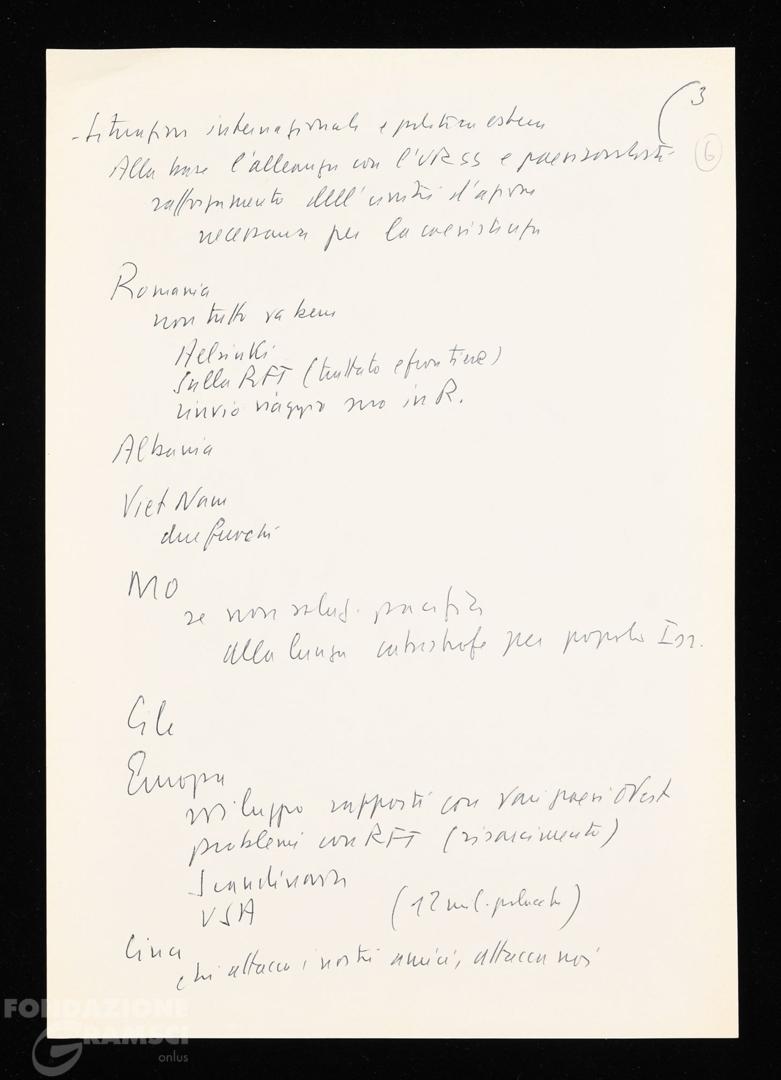 3
6
- Situazione internazionale e politica estera
Alla base l'alleanza con l'URSS e paesi socialisti
rafforzamento dell'unità d'azione
necessaria per la coesistenza
Romania
non tutto va bene
Helsinki
Sulla RFT (trattato e frontiere)
rinvio viaggio suo in R.
Albania
Viet Nam
due fuochi
MO
se non soluz. pacifica
alla lunga catastrofe per popolo Isr.
Cile
Europa
sviluppo rapporti con vari paesi Ovest
problemi con RFT (risarcimento)
Scandinavia
USA (12 mil. polacchi)
Cina
chi attacca i nostri amici, attacca noi
FONDAZIONE
GRAMSCI
onlus